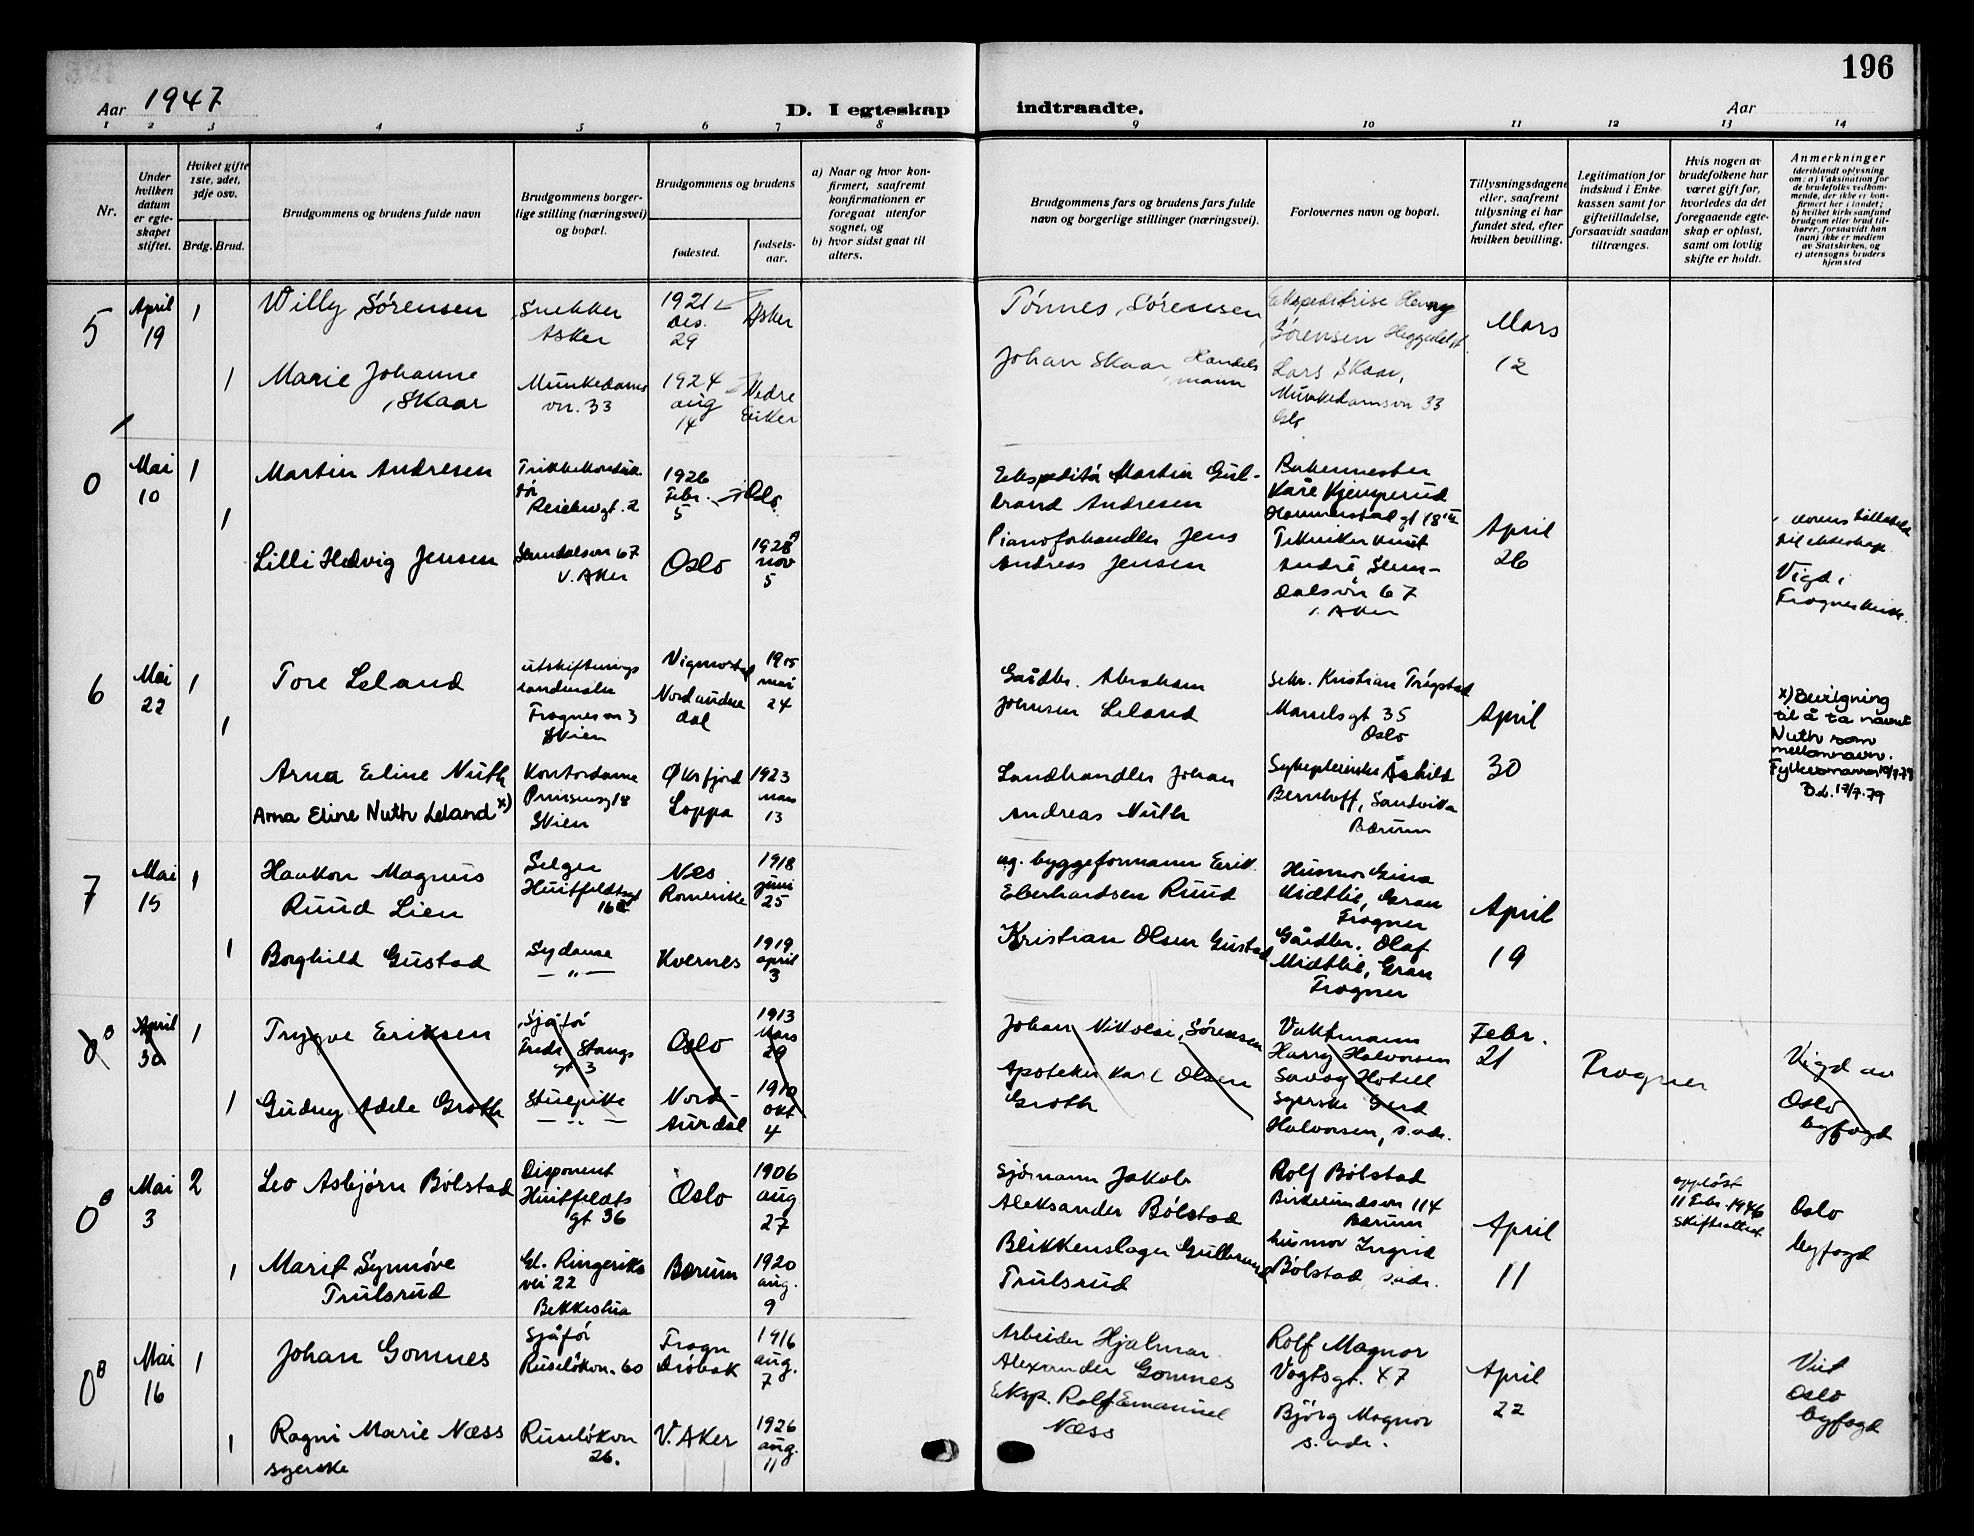 196
Aar 1947
D. I egteskap
indtraadte.
Aar
1 2 3 4 5 6 7 8
9 10 11 12 13 14
Nr.
Under hvilken datum er egteskapet stiftet.
Hvilket gifte 1ste, 2det, 3dje osv.
Brdg. Brud.
Brudgommens og brudens fulde navn
Brudgommens borgerlige stilling (næringsvei) og bopæl.
Brudgommens og brudens
fødested.
fødselsaar.
a) Naar og hvor konfirmert, saafremt konfirmationen er foregaat utenfor sognet, og
b) hvor sidst gaat til alters.
Brudgommens fars og brudens fars fulde navn og borgerlige stillinger (næringsvei).
Forlovernes navn og bopæl.
Tillysningsdagene eller, saafremt tillysning ei har fundet sted, efter hvilken bevilling.
Legitimation for indskud i Enkekassen samt for giftetilladelse, forsaavidt saadan tiltrænges.
Hvis nogen av brudefolkene har været gift før, hvorledes da det foregaaende egteskap er opløst, samt om lovlig skifte er holdt.
Anmerkninger
(deriblandt oplysning om: a) Vaksination for de brudefolks vedkommende, der ikke er konfirmert her i landet; b) hvilket kirkesamfund brudgom eller brud tilhører, forsaavidt han (hun) ikke er medlem av Statskirken, og c) utensogns bruders hjemsted
5
April
19
1
Willy Sørensen
Snekker
Asker
1921
des.
29
Asker
Tønnes Sørensen
Sørensen
Mars
12
1
Marie Johanne
Skaar
Munkedams
vn. 33
1924
aug
14
Nedre
Eiker
Johan Skaar Handels
mann
Lars Skaar,
Munkedamsvn 33
Oslo
0
Mai
10
1
Martin Andresen
1926
Febr.
5
Oslo
Ekspeditør Martin Gul-
brand Andresen
Bakermester
Kåre Kjemperud
April
26
1
Lilli Hedvig Jensen
67
V. Aker
Oslo
1928
nov
5
Pianoforhandler Jens
Andreas Jensen
Tekniker Knut
André Slem-
dalsvn 67
V. Aker
til ekteskap.
Vigd i
Frogner kirke.
6
Mai
22
1
Tore Leland
utskiftnings
landmåler
Frognervn 3
Skien
Vigmostad
Nord audne
dal
1915
mai
24
Gårdbr. Abraham
Johnsen Leland
Sekr. Kristian Trøgstad
35
Oslo
April
30
x) Bevilgning
til å ta navnet
Nuth som
mellomnavn.
Bd. 17/7.79
1
Arna Eline Nuth
Arna Eline Nuth Leland x)
Kontordame
Prinsensg 18
Skien
Øksfjord
Loppa
1923
mars
13
Landhandler Johan
Andreas Nuth
Sykepleierske Åshild
Bernhoff, Sandvika
Bærum
7
Mai
15
1
Haakon Magnus
Ruud Lien
Selger
Huitfeldtsgt
16
Nes
Romerike
1918
juni
25
ug. byggeformann Erik
Eberhardsen Ruud
Husmor Gina
Midtlie, Gran
Frogner
April
19
1
Borghild Gustad
Sydame
— „ —
Kvernes
1919
april
3
Kristian Olsen Gustad
Gårdbr. Olaf
Midtlie, Gran
Frogner
0 B
April
30
1
Trygve Eriksen
Sjåfør
Fredr. Stangs
gt 3
Oslo
1913
Mars
29
Johan Nikolai Sørensen
Vaktmann
Harry Halvorsen
Savoy Hotell
Febr.
21
Frogner
Vigd av
Oslo
byfogd
1
Gudny Adele Groth
Stuepike
— „ —
Nord-
Aurdal
1910
okt
4
Apoteker Karl Olsen
Groth
Syerske Gerd
Halvorsen, s.adr.
0 B
Mai
3
2
Leo Asbjørn Bølstad
Disponent
Huitfeldts
gt 36
Oslo
1906
aug
27
Sjömann Jakob
Aleksander Bølstad
Rolf Bølstad
114
Bærum
April
11
oppløst
11 Febr. 1946
Skifteattest
Oslo
byfogd
1
Marit Synnøve
Trulsrud
Gl. Ringeriks
vei 22
Bekkestua
Bærum
1920
aug.
9
Blikkenslager Gulbrand
Trulsrud
husmor Ingrid
Bølstad, s.adr.
0 B
Mai
16
1
Johan Gomnes
Sjåfør
Ruseløkvn. 60
Frogn
Drøbak
1916
aug.
7
Arbeider Hjalmar
Alexander Gomnes
Rolf Magnor
Vogtsgt. 47
April
22
Viet
Oslo
byfogd
1
Ragni Marie Næss
syerske
Ruseløkvn
26.
V. Aker
1926
aug.
11
Eksp. Rolf Emanuel
Næss
Bjørg Magnor
s. adr.